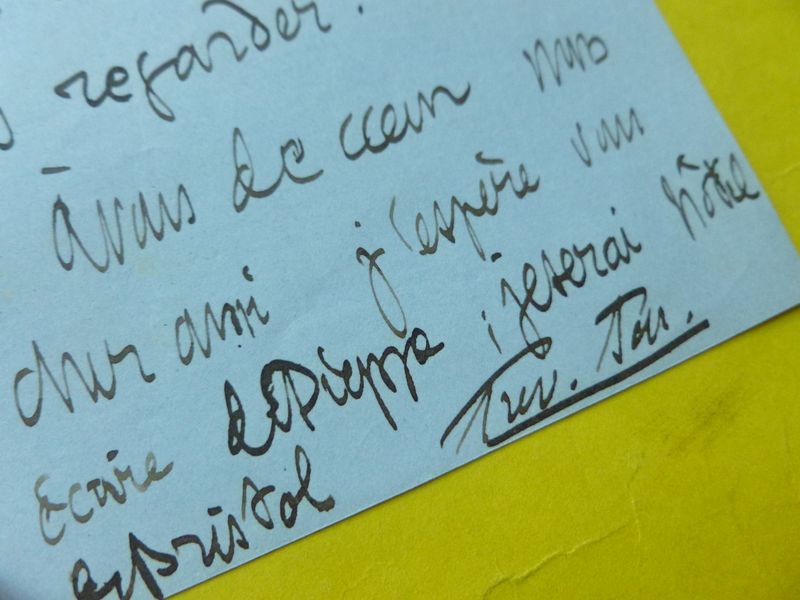 regarder.
à vous de cœur mes
chur aussi j'espère vous
Ecrire de Dieppe, je serai hôtel
Bristol